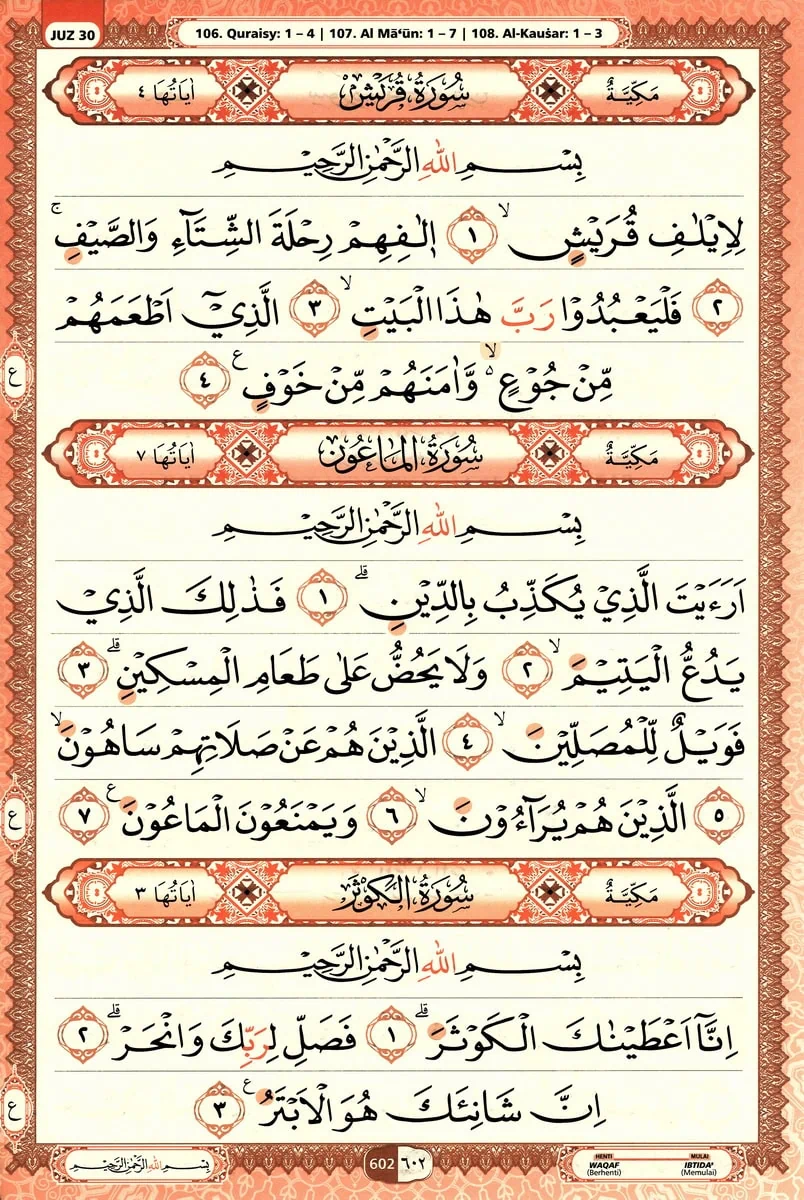 JUZ 30
106. Quraisy: 1 – 4 | 107. Al Mā‘ūn: 1 – 7 | 108. Al-Kauṡar: 1 – 3
مَكِّيَّةٌ سُوْرَةُ قُرَيْشٍ اٰيَاتُهَا ٤
بِسْمِ اللّٰهِ الرَّحْمٰنِ الرَّحِيْمِ
لِاِيْلٰفِ قُرَيْشٍۙ ١ اٖلٰفِهِمْ رِحْلَةَ الشِّتَاۤءِ وَالصَّيْفِۚ
٢ فَلْيَعْبُدُوْا رَبَّ هٰذَا الْبَيْتِۙ ٣ الَّذِيْٓ اَطْعَمَهُمْ
مِّنْ جُوْعٍ ەۙ وَّاٰمَنَهُمْ مِّنْ خَوْفٍ ࣖ ٤
ع
مَكِّيَّةٌ سُوْرَةُ الْمَاعُوْنَ اٰيَاتُهَا ٧
بِسْمِ اللّٰهِ الرَّحْمٰنِ الرَّحِيْمِ
اَرَءَيْتَ الَّذِيْ يُكَذِّبُ بِالدِّيْنِۗ ١ فَذٰلِكَ الَّذِيْ
يَدُعُّ الْيَتِيْمَۙ ٢ وَلَا يَحُضُّ عَلٰى طَعَامِ الْمِسْكِيْنِۗ ٣
فَوَيْلٌ لِّلْمُصَلِّيْنَۙ ٤ الَّذِيْنَ هُمْ عَنْ صَلَاتِهِمْ سَاهُوْنَۙ
٥ الَّذِيْنَ هُمْ يُرَاۤءُوْنَۙ ٦ وَيَمْنَعُوْنَ الْمَاعُوْنَ ࣖ ٧
ع
مَكِّيَّةٌ سُوْرَةُ الْكَوْثَرَ اٰيَاتُهَا ٣
بِسْمِ اللّٰهِ الرَّحْمٰنِ الرَّحِيْمِ
اِنَّآ اَعْطَيْنٰكَ الْكَوْثَرَۗ ١ فَصَلِّ لِرَبِّكَ وَانْحَرْۗ ٢
اِنَّ شَانِئَكَ هُوَ الْاَبْتَرُ ࣖ ٣
ع
بِسْمِ اللّٰهِ الرَّحْمٰنِ الرَّحِيْمِ
602 ٦٠٢
HENTI MULAI
WAQAF IBTIDA'
(Berhenti) (Memulai)